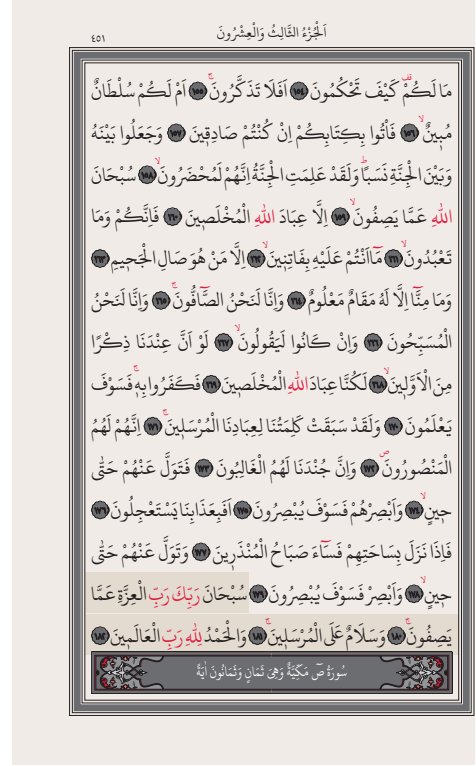 اَلْجُزْءُ الثَّالِثُ وَالْعِشْرُونَ
٤٥١
مَا لَكُمْ۠ كَيْفَ تَحْكُمُونَ ﴿١٥٤﴾ اَفَلَا تَذَكَّرُونَۚ ﴿١٥٥﴾ اَمْ لَكُمْ سُلْطَانٌ
مُب۪ينٌۙ ﴿١٥٦﴾ فَأْتُوا بِكِتَابِكُمْ اِنْ كُنْتُمْ صَادِق۪ينَ ﴿١٥٧﴾ وَجَعَلُوا بَيْنَهُ
وَبَيْنَ الْجِنَّةِ نَسَبًاۜ وَلَقَدْ عَلِمَتِ الْجِنَّةُ اِنَّهُمْ لَمُحْضَرُونَۙ ﴿١٥٨﴾ سُبْحَانَ
اللّٰهِ عَمَّا يَصِفُونَۙ ﴿١٥٩﴾ اِلَّا عِبَادَ اللّٰهِ الْمُخْلَص۪ينَ ﴿١٦٠﴾ فَاِنَّكُمْ وَمَا
تَعْبُدُونَۙ ﴿١٦١﴾ مَٓا اَنْتُمْ عَلَيْهِ بِفَاتِن۪ينَۙ ﴿١٦٢﴾ اِلَّا مَنْ هُوَ صَالِ الْجَح۪يمِ ﴿١٦٣﴾
وَمَا مِنَّٓا اِلَّا لَهُ مَقَامٌ مَعْلُومٌ ﴿١٦٤﴾ وَاِنَّا لَنَحْنُ الصَّٓافُّونَۚ ﴿١٦٥﴾ وَاِنَّا لَنَحْنُ
الْمُسَبِّحُونَ ﴿١٦٦﴾ وَاِنْ كَانُوا لَيَقُولُونَۙ ﴿١٦٧﴾ لَوْ اَنَّ عِنْدَنَا ذِكْرًا
مِنَ الْاَوَّل۪ينَۙ ﴿١٦٨﴾ لَكُنَّا عِبَادَ اللّٰهِ الْمُخْلَص۪ينَ ﴿١٦٩﴾ فَكَفَرُوا بِه۪ۚ فَسَوْفَ
يَعْلَمُونَ ﴿١٧٠﴾ وَلَقَدْ سَبَقَتْ كَلِمَتُنَا لِعِبَادِنَا الْمُرْسَل۪ينَۚ ﴿١٧١﴾ اِنَّهُمْ لَهُمُ
الْمَنْصُورُونَۖ ﴿١٧٢﴾ وَاِنَّ جُنْدَنَا لَهُمُ الْغَالِبُونَ ﴿١٧٣﴾ فَتَوَلَّ عَنْهُمْ حَتّٰى
ح۪ينٍۙ ﴿١٧٤﴾ وَاَبْصِرْهُمْ فَسَوْفَ يُبْصِرُونَ ﴿١٧٥﴾ اَفَبِعَذَابِنَا يَسْتَعْجِلُونَ ﴿١٧٦﴾
فَاِذَا نَزَلَ بِسَاحَتِهِمْ فَسَٓاءَ صَبَاحُ الْمُنْذَر۪ينَ ﴿١٧٧﴾ وَتَوَلَّ عَنْهُمْ حَتّٰى
ح۪ينٍۙ ﴿١٧٨﴾ وَاَبْصِرْ فَسَوْفَ يُبْصِرُونَ ﴿١٧٩﴾ سُبْحَانَ رَبِّكَ رَبِّ الْعِزَّةِ عَمَّا
يَصِفُونَۚ ﴿١٨٠﴾ وَسَلَامٌ عَلَى الْمُرْسَل۪ينَۚ ﴿١٨١﴾ وَالْحَمْدُ لِلّٰهِ رَبِّ الْعَالَم۪ينَ ﴿١٨٢﴾
سُورَةُ صٓ مَكِّيَّةٌ وَهِيَ ثَمَانٍ وَثَمَانُونَ اٰيَةً